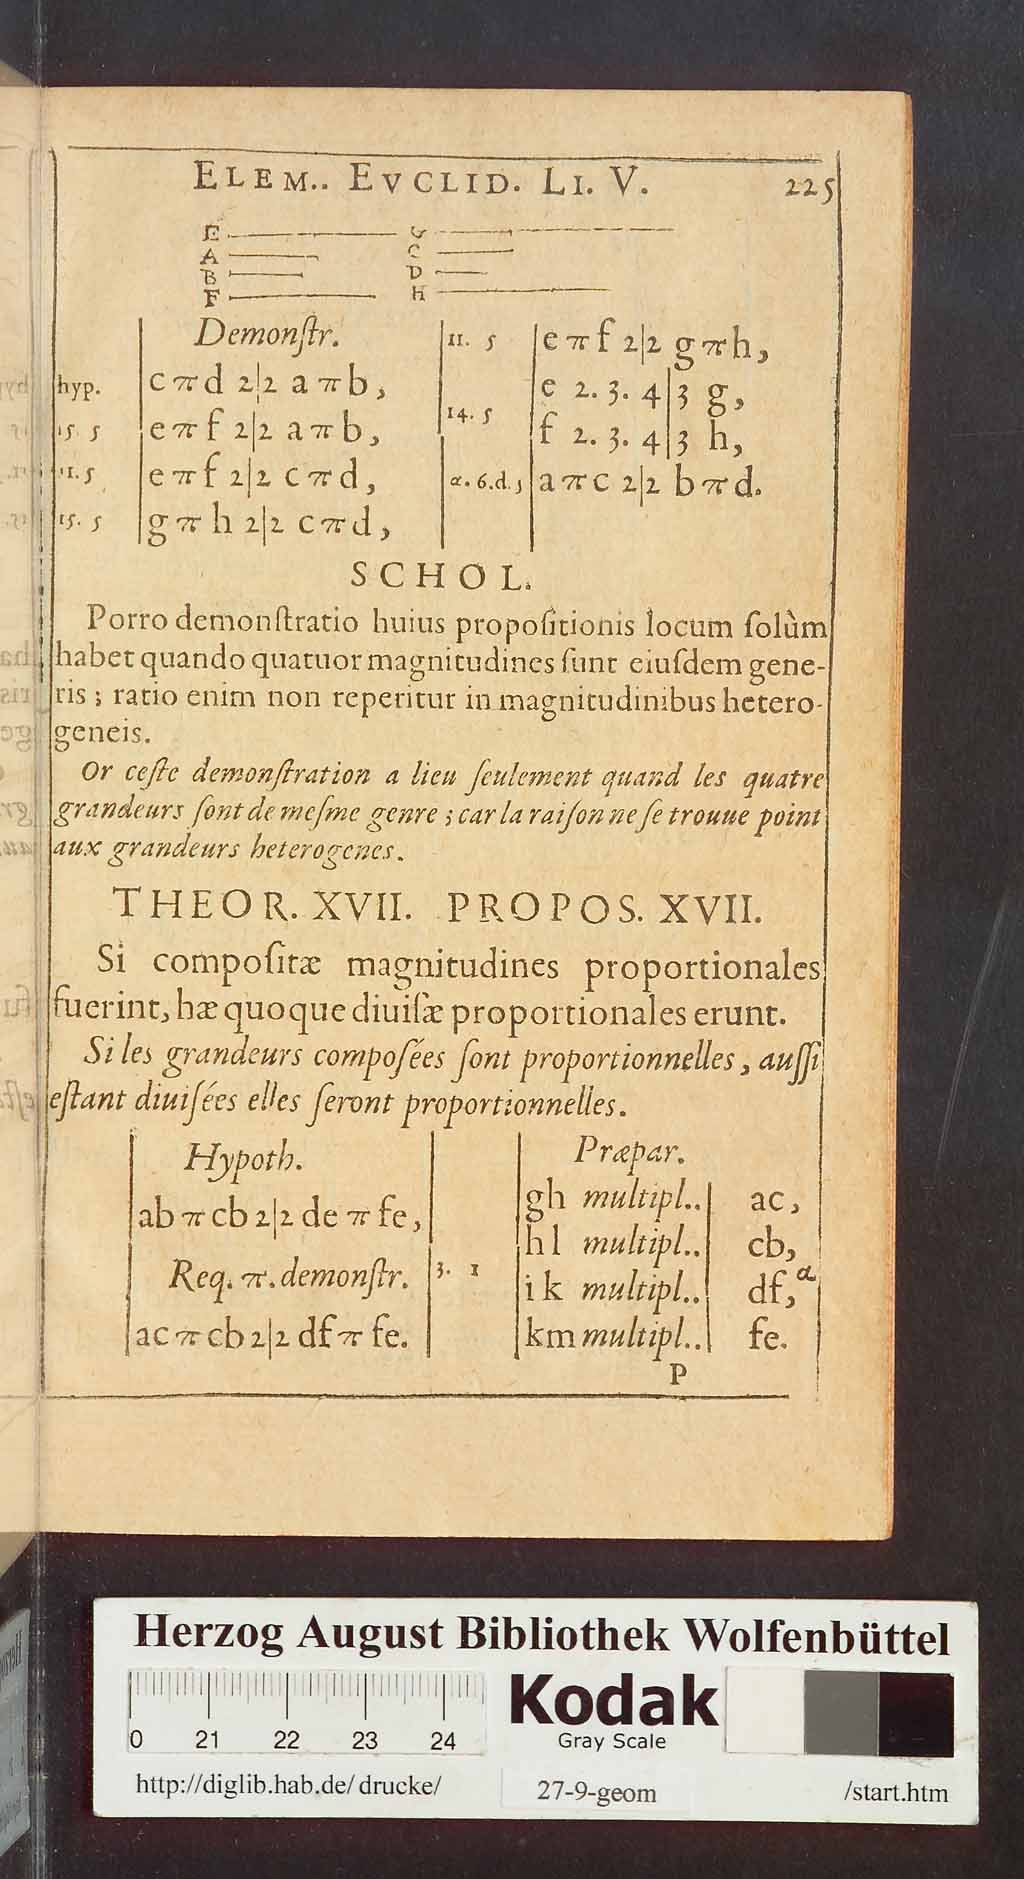 ELEM.. EVCLID. LI. V. 225
E G
A C
B D
F H
Demonſtr.
hyp. cπd 2|2 aπb,
15. 5 eπf 2|2 aπb,
11. 5 eπf 2|2 cπd,
15. 5 gπh 2|2 cπd,
11. 5 eπf 2|2 gπh,
14. 5 e 2. 3. 4|3 g,
f 2. 3. 4|3 h,
α. 6. d. 5 aπc 2|2 bπd.
SCHOL.
Porro demonſtratio huius propoſitionis locum ſolùm
habet quando quatuor magnitudines ſunt eiuſdem gene-
ris ; ratio enim non reperitur in magnitudinibus hetero-
geneis.
Or ceſte demonſtration a lieu ſeulement quand les quatre
grandeurs ſont de meſme genre ; car la raiſon ne ſe trouue point
aux grandeurs heterogenes.
THEOR. XVII. PROPOS. XVII.
Si compoſitæ magnitudines proportionales
fuerint, hæ quoque diuiſæ proportionales erunt.
Si les grandeurs compoſées ſont proportionnelles, auſſi
eſtant diuiſées elles ſeront proportionnelles.
Hypoth.
ab π cb 2|2 de π fe,
Req. π. demonſtr.
ac π cb 2|2 df π fe.
Præpar.
3. 1
gh multipl.. ac,
hl multipl.. cb,
ik multipl.. df,α
km multipl.. fe.
P
Herzog August Bibliothek Wolfenbüttel
Kodak
Gray Scale
0 21 22 23 24
http://diglib.hab.de/drucke/ 27-9-geom /start.htm